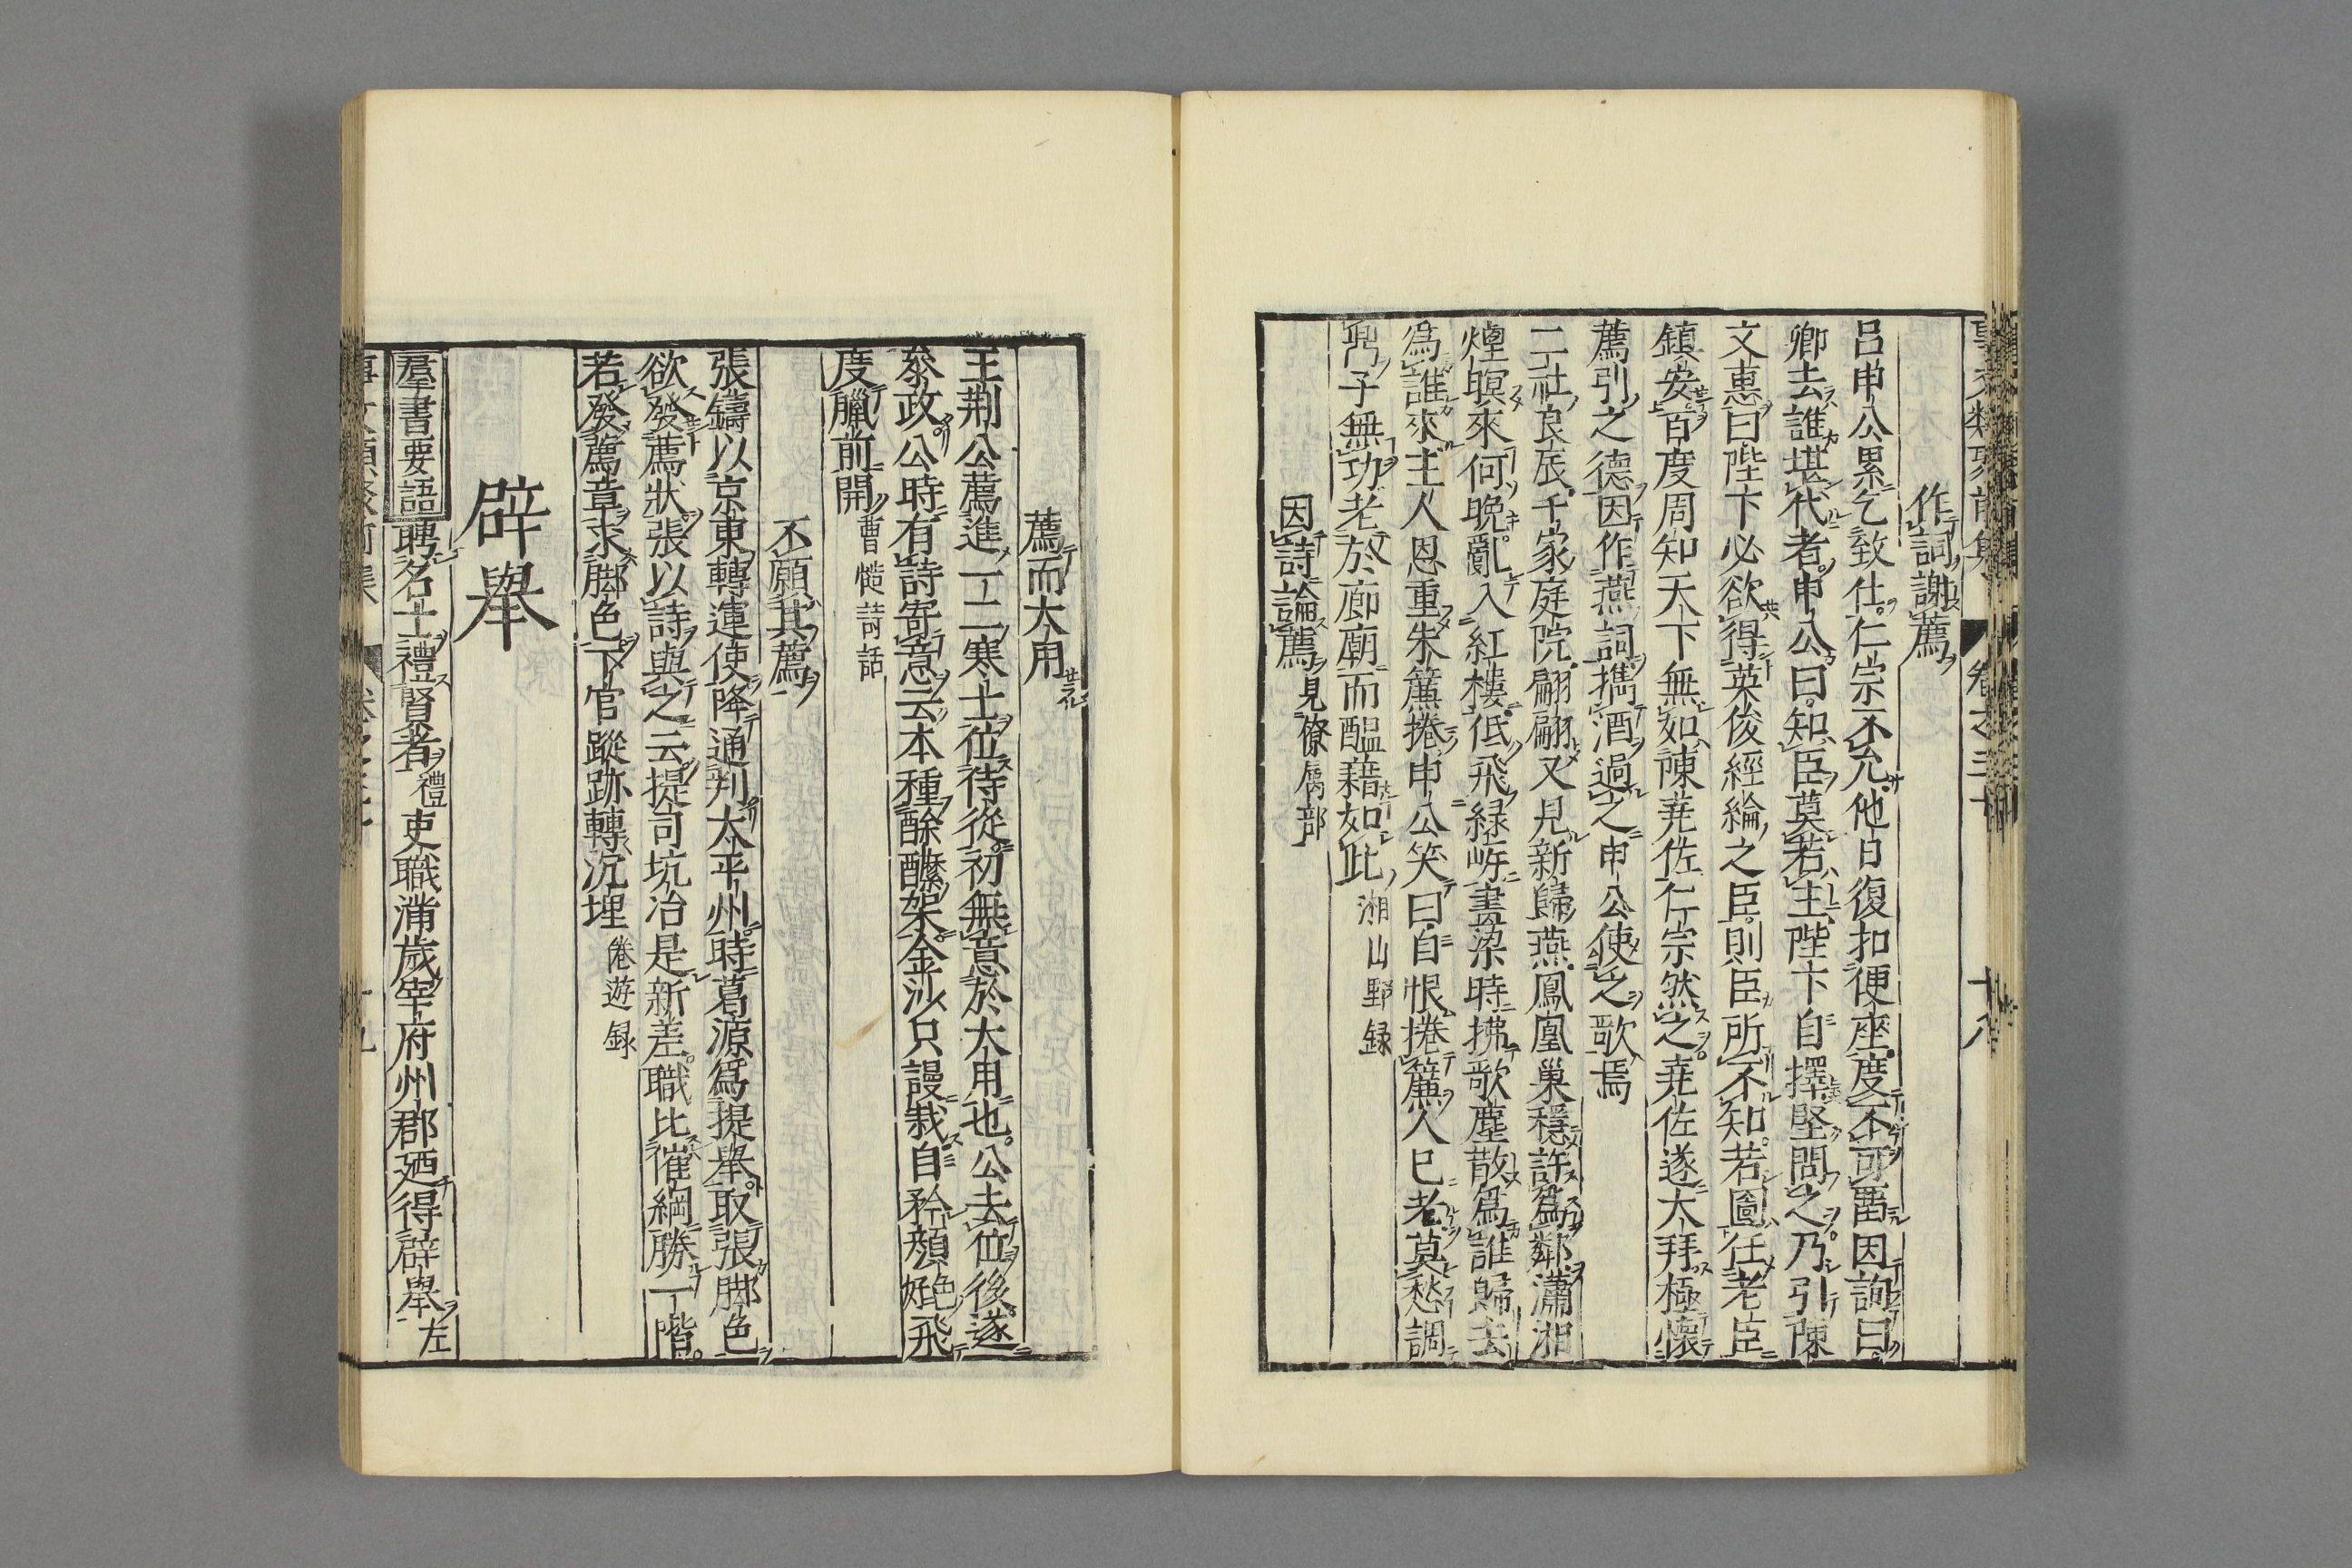 作詞謝薦
呂申公累乞致仕仁宗不允他日復扣便座度不可畱因詢曰
卿去誰堪代者申公曰知臣莫若主陛下自擇堅問之乃引陳
文惠曰陛下必欲得英俊經綸之臣則臣所不知若圖任老臣
鎮安百度周知天下無如陳堯佐仁宗然之堯佐遂大拜極懷
薦引之德因作燕詞攜酒過之申公使之歌焉
二社良辰千家庭院翩翩又見新歸燕鳳凰巢穩許爲鄰瀟湘
煙暝來何晚亂入紅樓低飛緑岸畫梁時拂歌塵散爲誰歸去
爲誰來主人恩重朱簾捲申公笑曰自恨捲簾人已老莫愁調
鼎子無功老於廊廟而醖藉如此湘山野録
因詩論薦見僚屬部
薦而大用
王荆公薦進一二寒士位待從初無意於大用也公去位後遂
叅政公時有詩寄意云本種酴醾架金沙只謾栽自矜顔好絶飛
度雕前開曹慥詩話
不願其薦
張鑄以京東轉運使降通判太平州時葛源爲提舉取張脚色
欲發薦狀張以詩與之云提司坑冶是新差職比催綱勝一階
若發薦章求脚色下官蹤跡轉沉埋倦遊録
辟舉
羣書要語聘名士禮賢者禮吏職滿歲宰府州郡廼得辟舉左